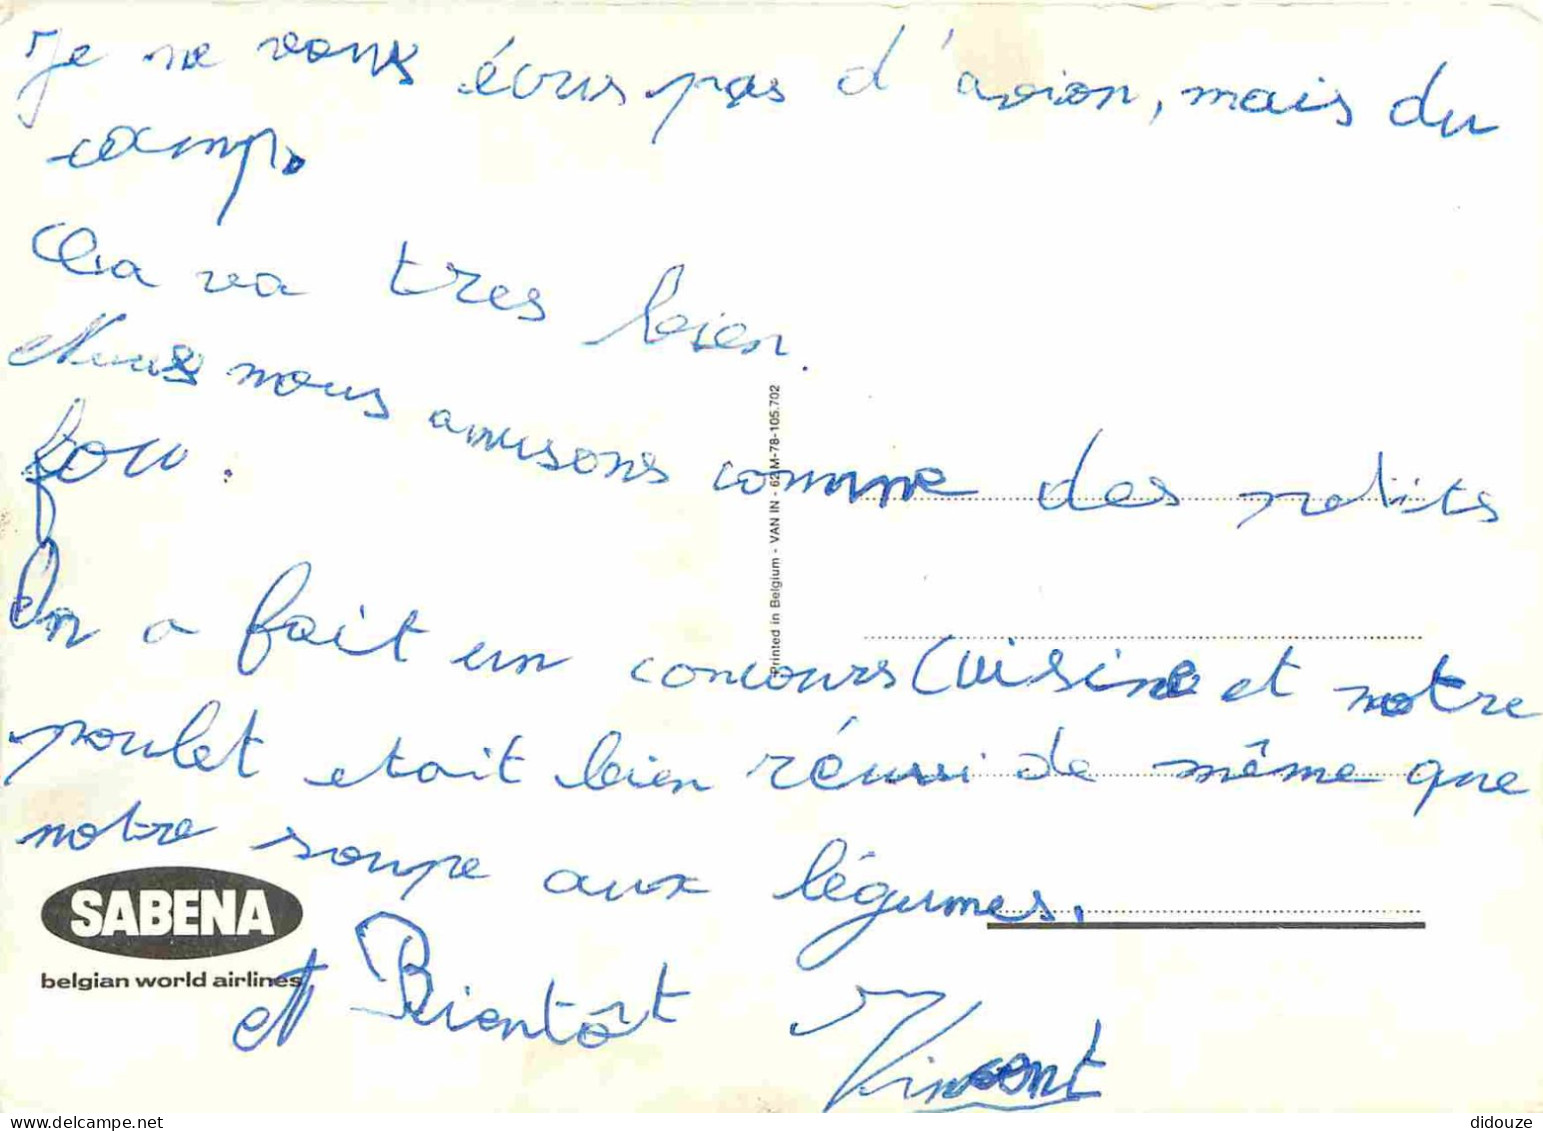 Je ne vous écris pas d'avion, mais du
camp.
Ca va tres bien.
Nous nous amusons comme des petits
fou.
On a fait un concours Cuisine et notre
poulet etait bien réussi de même que
notre soupe aux légumes.
A Bientôt
Vincent
SABENA
belgian world airlines
Printed in Belgium - VAN IN - 62 M-78-105.702
didouze